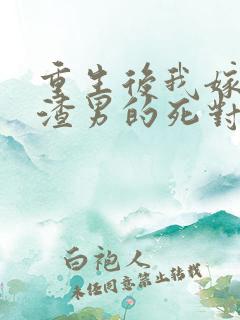 重生後我嫁
渣男的死對
白袍人
未经同意禁止转载